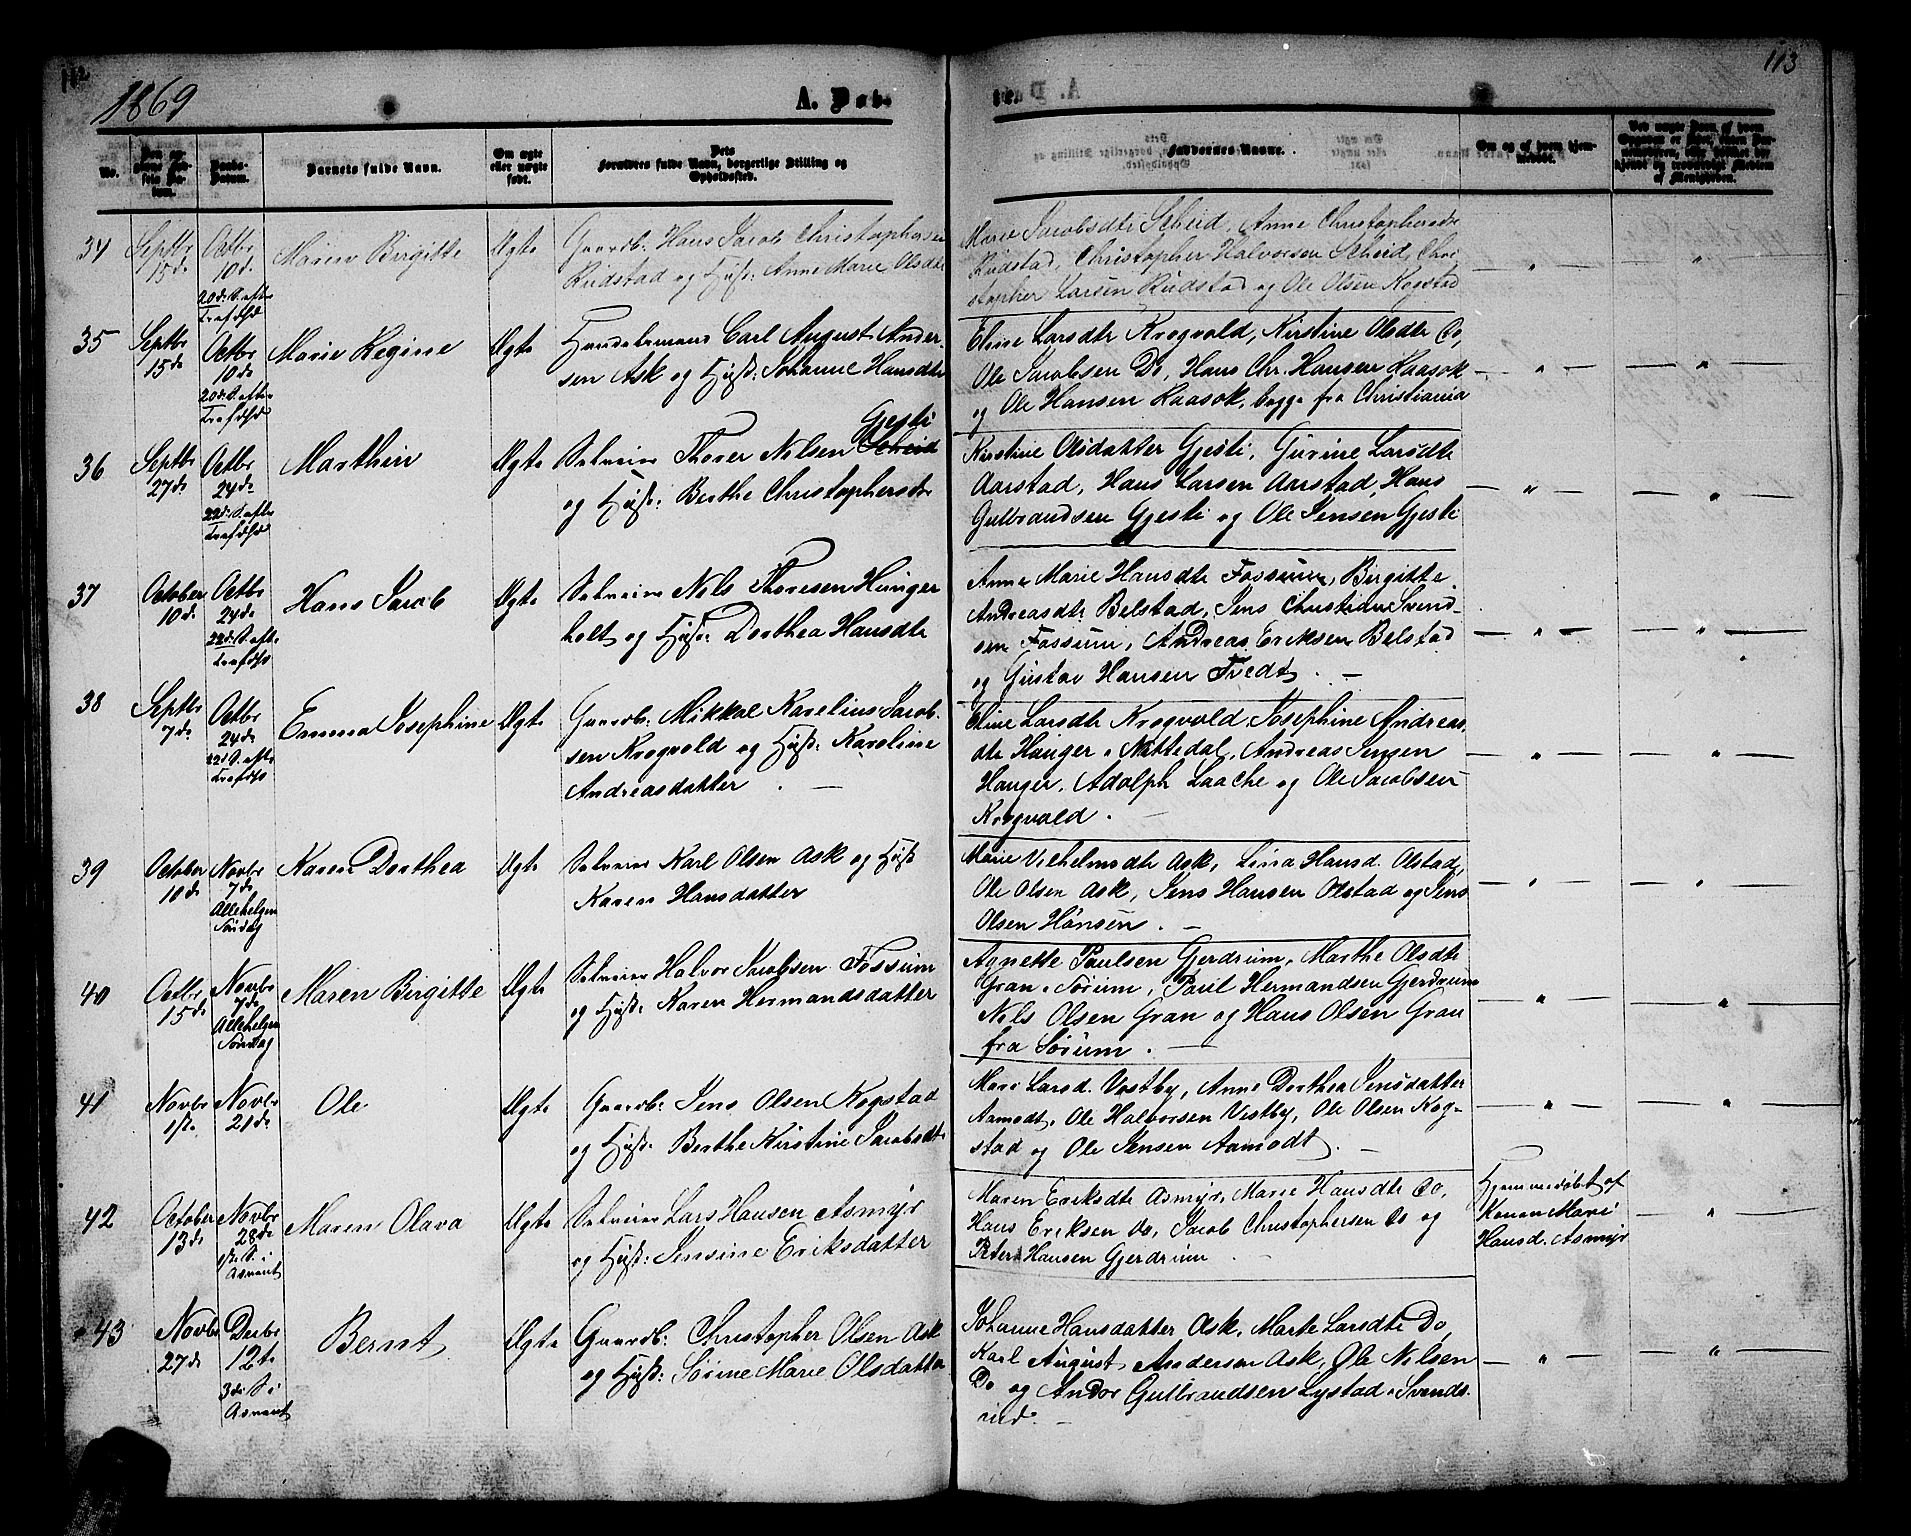 112
1869
A. Døb-
113
No.
Barnets fulde Navn.
Om ægte eller uægte født.
Forældres fulde Navn, borgerlige Stilling og Opholdssted.
Faddernes Navne.
Om og af hvem hjemmedøbt.
34
Septbr 15de
Octbr 10de
20de S. eft. Trefdhd
Maren Birgitte
Ægte
Gaardb: Hans Jacob Christophersen
Rudstad og Hust: Anne Marie Olsdtr
Marie Jacobsdtr Scheid, Anne Christophersdtr
Rudstad, Christopher Halvorsen Scheid, Chri-
stopher Larsen Rudstad og Ole Olsen Kogstad
35
Septbr 15de
Octbr 10de
20de S. eftr Trefdhd
Marie Regine
Ægte
Handelsmand Carl August Ander-
sen Ask og Hust: Johanne Hansdtr
Eline Larsdtr Krogvold, Kirstine Olsdtr Do,
Ole Jacobsen Do, Hans Chr. Hansen Haasok
og Ole Hansen Haasok, begge fra Christiania
36
Septbr 27de
Octbr 24de
22de S. eftr Trefdhd
Marthin
Ægte
Selveier Thorer Nilsen Gjesti
og Hust: Berthe Christophersdtr
Kirstine Olsdatter Gjesti, Gurine Larsdtr
Aarstad, Hans Larsen Aarstad, Hans
Gulbrandsen Gjesti og Ole Jensen Gjesti
37
October 10de
Octbr 24de
22de S. eftr Trefdhd
Hans Jacob
Ægte
Selveier Nils Thoresen Hunger
holt og Hust: Dorthea Hansdtr
Anne Marie Hansdtr Fossum, Birgitte
Andreasdtr Belstad, Jens Christian Svend-
sen Fossum, Andreas Eriksen Belstad
og Gustav Hansen Tvedt. —
38
Septbr 7de
Octbr 24de
22d S. eftr Trefdhd
Emma Josephine
Ægte
Gaardb: Mikkal Karelius Jacob-
sen Krogvold og Hust: Karoline
Andreasdatter . —
Eline Larsdtr Krogvold, Josephine Andreas
dtr Hauger i Nittedal, Andreas Jensen
Hauger, Adolph Laache og Ole Jacobsen
Krogvold .
39
October 10de
Novbr 7de
Allehelgen Søndag
Karen Dorthea
Ægte
Selveier Karl Olsen Ask og Hust
Karen Hansdatter
Marie Vilhelmsdtr Ask, Lina Hansd. Olstad,
Ole Olsen Ask, Jens Hansen Olstad og Jens
Olsen Hønsen. —
40
Octbr 15de
Novbr 7de
Allehelgen Søndag
Maren Birgitte
Ægte
Selveier Halvor Jacobsen Fossum
og Hust: Karen Hermandsdatter
Agnette Paulsen Gjerdrum, Marthe Olsdtr
Gran i Sørum, Paul Hermandsen Gjerdrum
Nils Olsen Gran og Hans Olsen Gran
fra Sørum . —
41
Novbr 1ste
Novbr 21de
Ole
Ægte
Gaardb: Jens Olsen Kogstad
og Hust: Berthe Kirstine Jacobsdtr
Mari Larsd. Vestby, Anne Dorthea Jensdatter
Aamodt, Ole Halvorsen Vestby, Ole Olsen Kog-
stad og Ole Jensen Aamodt. —
42
October 13de
Novbr 28de
1ste S. i Advent
Maren Olava
Ægte
Selveier Lars Hansen Asmyr
og Hust: Jensine Eriksdatter
Maren Eriksdtr Asmyr, Marie Hansdtr Do,
Hans Eriksen Do, Jacob Christophersen Do og
Peter Hansen Gjerdrum —
Hjemmedøbt af
Konen Mari
Hansd. Asmyr
43
Novbr 27de
Decbr 12te
3die S. i Advent
Bernt
Ægte
Gaardb: Christopher Olsen Ask
og Hust: Sørine Marie Olsdatter
Johanne Hansdatter Ask, Marte Larsdtr Do,
Karl August Andersen Ask, Ole Nilsen
Do og Andor Gulbrandsen Lystad i Svends-
rud. —